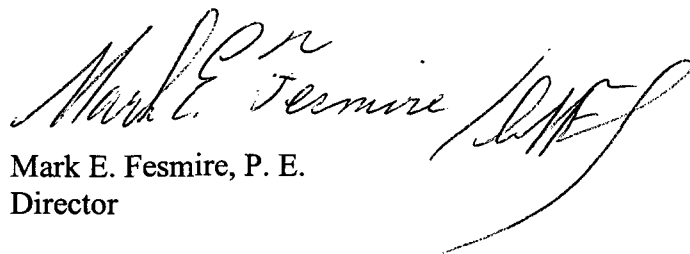 Mark E. Fesmire
Mark E. Fesmire, P. E.
Director